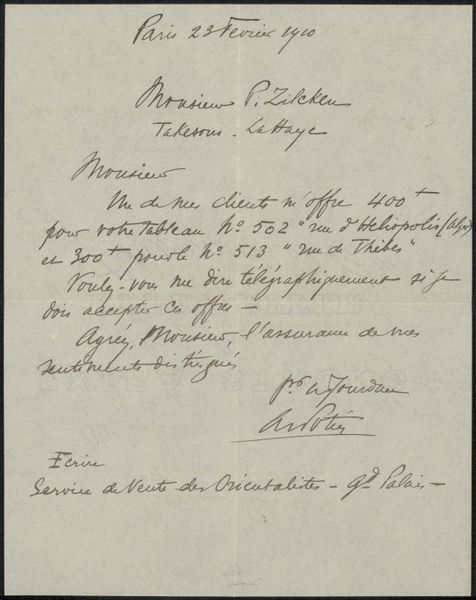 Paris 23 Fevrier 1910
Monsieur P. Zilcken
La Haye
Monsieur
Un de mes clients m'offre 400 f
pour votre Tableau Nº 502 "rue d'Heliopolis (Alger)
et 300 f pour le Nº 513 "rue de Thèbes"
Voulez-vous me dire télégraphiquement si je
dois accepter ces offres —
Agréez, Monsieur, l'assurance de mes
sentiments distingués
Jourdan
Ecrire
Service de Vente des Orientalistes — Gd Palais —